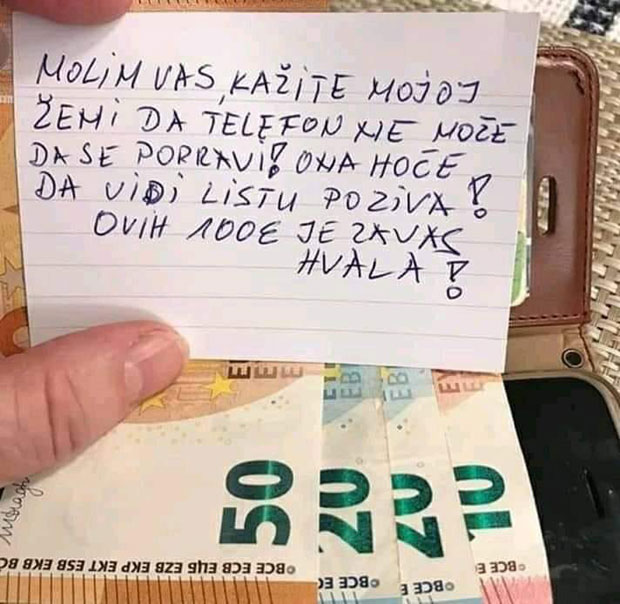 MOLIM VAS, KAŽITE MOJOJ
ŽENI DA TELEFON NE MOŽE
DA SE POPRAVI! ONA HOČE
DA VIDI LISTU POZIVA!
OVIH 100€ JE ZA VAS
HVALA!
50
20
20
10
© BCE ECB ЕЦБ EZB EKP EKT ESB EKB
© BCE
© BCE
© BCE